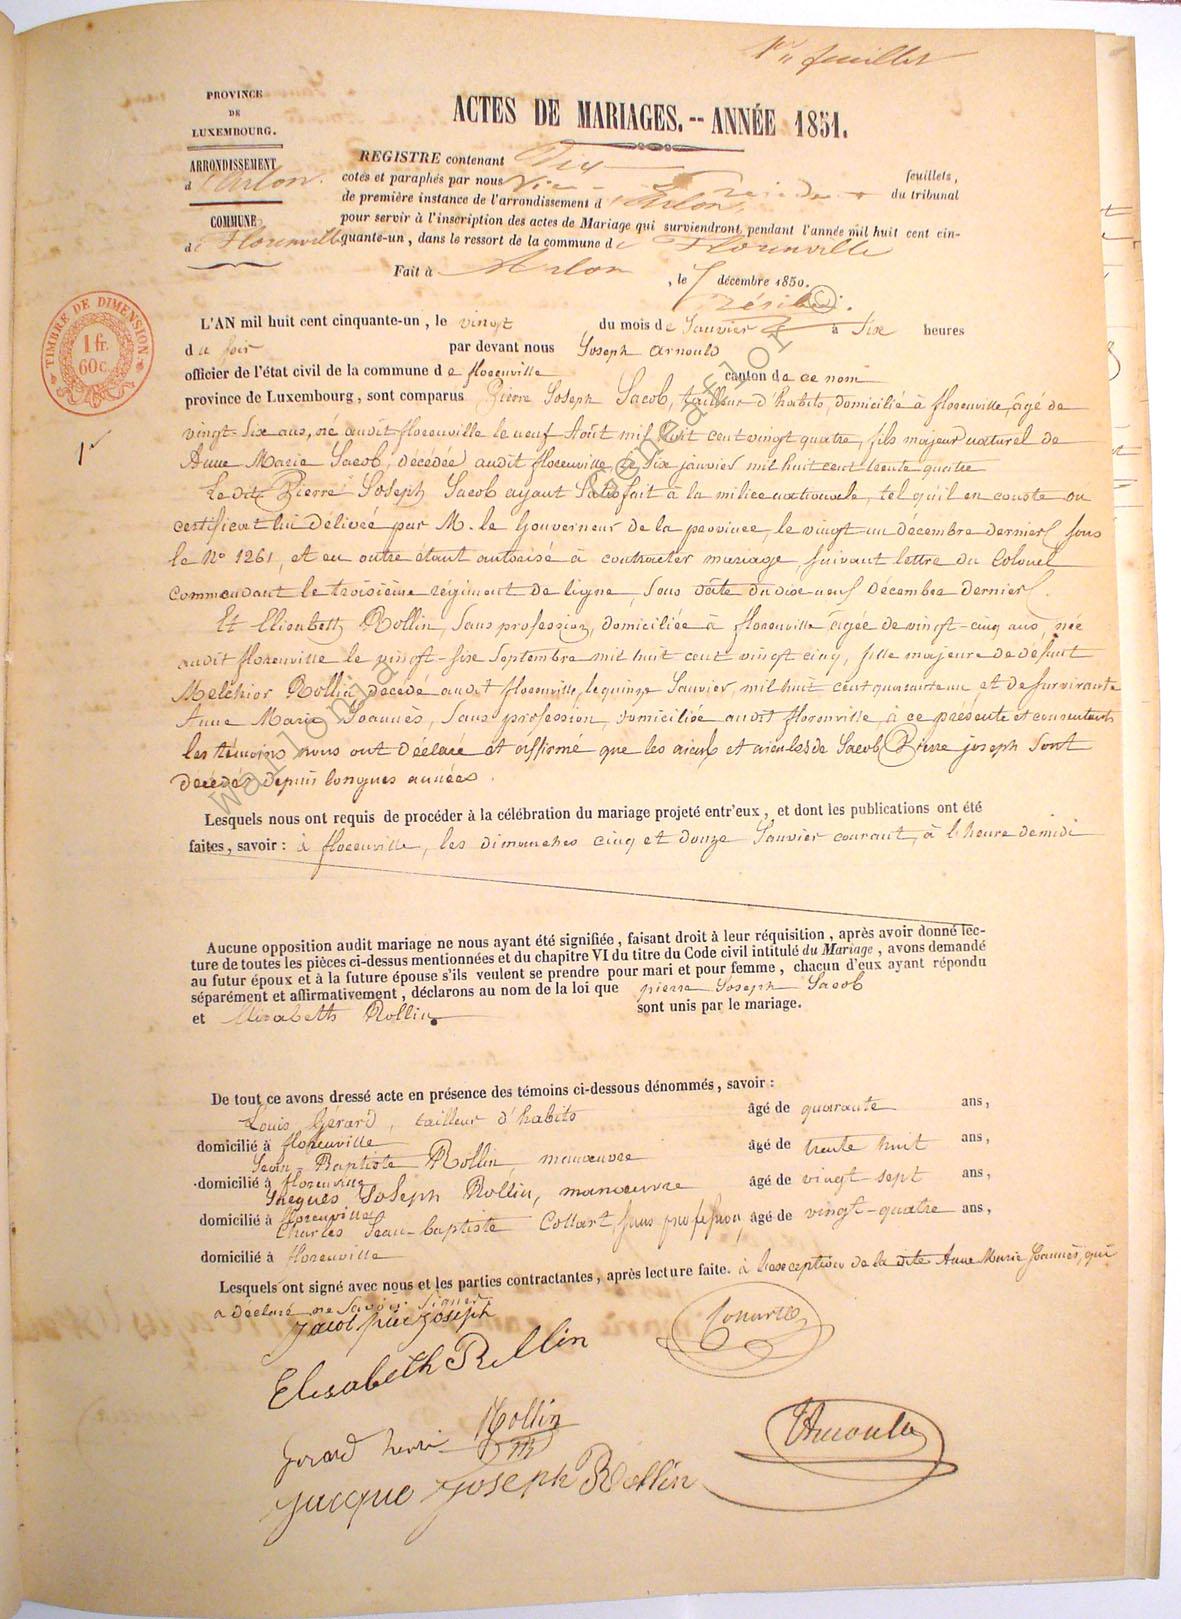 1er feuillet
PROVINCE
DE
LUXEMBOURG.
ARRONDISSEMENT
d'Arlon.
COMMUNE
de Florenville
ACTES DE MARIAGES.-- ANNÉE 1851.
REGISTRE contenant Dix feuillets,
cotés et paraphés par nous Vice- du tribunal
de première instance de l'arrondissement d'Arlon,
pour servir à l'inscription des actes de Mariage qui surviendront pendant l'année mil huit cent cin-
quante-un, dans le ressort de la commune de Florenville
Fait à Arlon, le 7 décembre 1850.
TIMBRE DE DIMENSION
1 fr.
60 c.
1er
L'AN mil huit cent cinquante-un, le vingt du mois de Janvier à Six heures
du soir par devant nous Joseph Arnould
officier de l'état civil de la commune de florenville canton de ce nom
province de Luxembourg, sont comparus Pierre Joseph Jacob, tailleur d'habits, domicilié à florenville, âgé de
vingt-six ans, né audit florenville le neuf Août mil huit cent vingt quatre, fils majeur naturel de
Anne Marie Jacob, décédée audit florenville, le Six janvier mil huit cent trente quatre
Le dit Pierre Joseph Jacob ayant Satisfait à la milice nationale, tel qu'il en conste au
certificat lui délivré par M. le Gouverneur de la province, le vingt-un décembre dernier, sous
le No 1261, et en outre étant autorisé à contracter mariage, suivant lettre du Colonel
Commandant le troisième régiment de ligne, sous date du dix-neuf Décembre dernier.
Et Elisabeth Rollin, Sans profession, domiciliée à florenville, âgée de vingt-cinq ans, née
audit florenville le vingt-six Septembre mil huit cent vingt cinq, fille majeure de défunt
Melchior Rollin, décédé audit florenville, le quinze Janvier, mil huit cent quarante un et de survivante
Anne Marie Joannès, Sans profession, domiciliée audit florenville, à ce présente et consentante
les témoins nous ont Déclaré et affirmé que les aïeux et aïeules de Jacob Pierre joseph sont
décédés depuis longues années.
Lesquels nous ont requis de procéder à la célébration du mariage projeté entr'eux, et dont les publications ont été
faites, savoir: à florenville, les dimanches cinq et douze Janvier courant, à l'heure de midi
Aucune opposition audit mariage ne nous ayant été signifiée, faisant droit à leur réquisition, après avoir donné lec-
ture de toutes les pièces ci-dessus mentionnées et du chapitre VI du titre du Code civil intitulé du Mariage, avons demandé
au futur époux et à la future épouse s'ils veulent se prendre pour mari et pour femme, chacun d'eux ayant répondu
séparément et affirmativement, déclarons au nom de la loi que pierre Joseph Jacob
et Elisabeth Rollin sont unis par le mariage.
De tout ce avons dressé acte en présence des témoins ci-dessous dénommés, savoir:
Louis Gérard, tailleur d'habits âgé de quarante ans,
domicilié à florenville
Jean-Baptiste Rollin, manoeuvre âgé de trente huit ans,
domicilié à florenville
Jacques Joseph Rollin, manoeuvre âgé de vingt-sept ans,
domicilié à florenville
Charles Jean-baptiste Collart, sans profession, âgé de vingt-quatre ans,
domicilié à florenville
Lesquels ont signé avec nous et les parties contractantes, après lecture faite. à l'exception de la dite Anne Marie Joannès, qui
a déclaré ne Savoir Signer.
Jacob pier joseph
Elisabeth Rollin
Rollin
Gerard henri
Jacque Joseph Rollin
JArnould